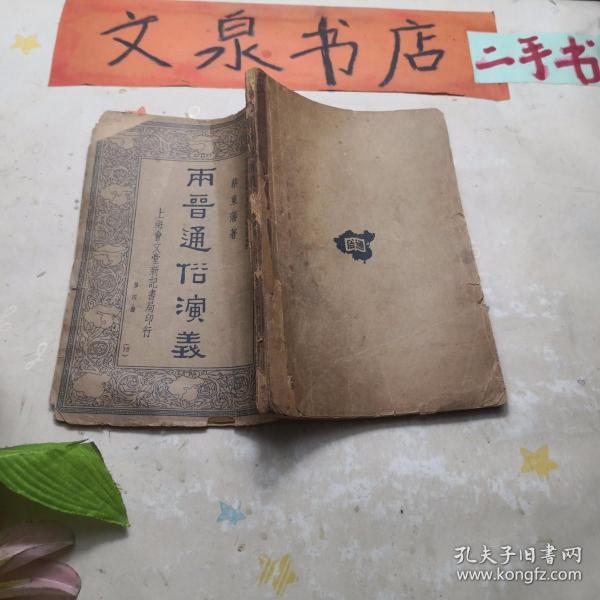 文泉书店
二手书
蔡東藩著
兩晉通俗演義
上海會文堂新記書局印行
第四册
孔夫子旧书网
www.kongfz.com